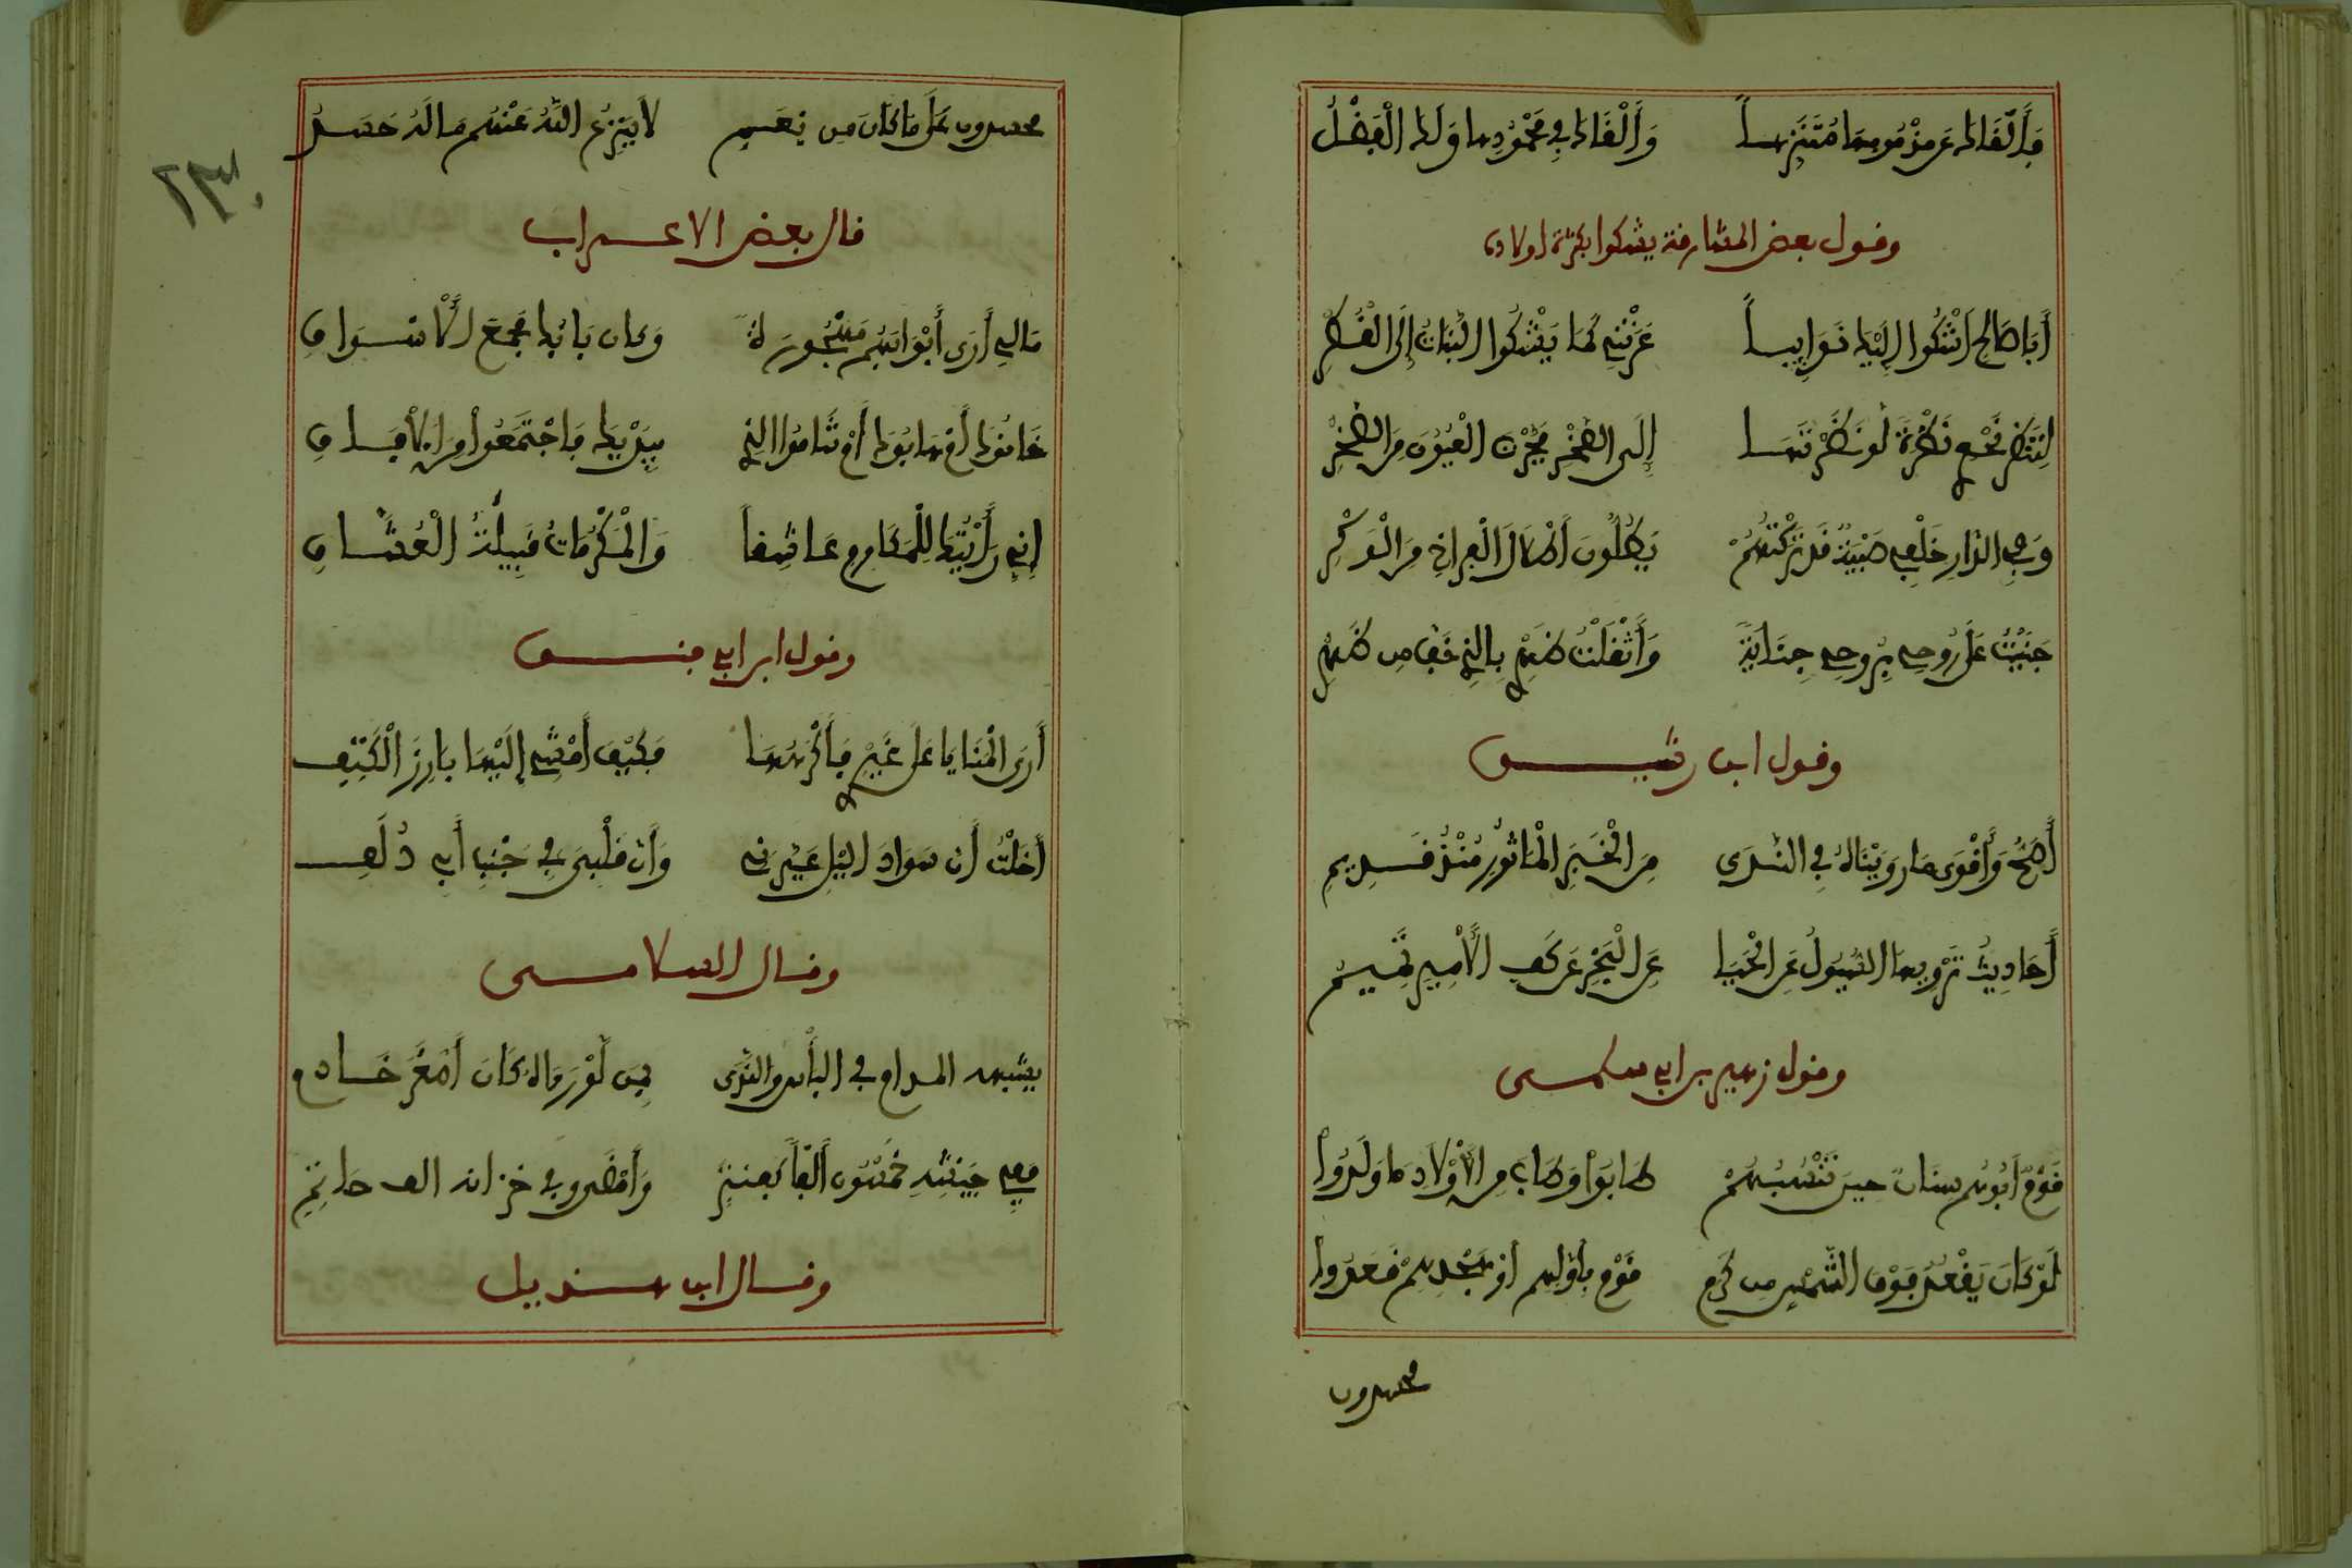 فألقاك عن مذمومها متنزها وألقاك في محمودها ولك الفضل
وقول بعض المشارقة يشكوا بكثرة اولاده
أبا صالح اشكوا إليك نوايبا عرتني كما يشكوا النبات إلى القطر
لتنظر نحوي نظرة لو نظرتها إلى الصخر فجرن العيون من الصخر
وفي الدار خلفي صبية قد تركتهم يطلون أطلال الفراخ من الوكر
جنيت على روحي بروحي جناية وأثقلت ظهري بالذي خف من ظهري
وقول ابن رشيق
أصح وأقوى ما رويناه في الندى من الخبر الماثور منذ قديم
أحاديث ترويها السيول عن الحيا عن البحر عن كف الأمير تميم
وقول زهير بن ابي سلمى
قوم أبوهم سنان حين تنسبهم طابوا وطاب من الأولاد ما ولدوا
لو كان يقعد فوق الشمس من كرم قوم بأولهم أو مجدهم قعدوا
محسدون
محسدون على ما كان من نعم لا ينزع الله عنهم ما له حسد
٢٣٠
قال بعض الاعراب
مالي أرى أبوابهم مهجورة وكان بابك مجمع الأسواق
خافوك أم هابوك أم شاموا الندى بيديك فاجتمعوا من الآفاق
إني رأيتك للمكارم عاشقا والمكرمات قليلة العشاق
وقول ابن ابي فنن
أرى المنايا على غيري فأكرهها فكيف أمشي إليها بارز الكتف
أخلت أن سواد الليل غيرني وأن قلبي في جنب أبي دلف
وقال السلامي
يشبهه المداح في البأس والندى بمن لو رءاه كان أصغر خادم
ففي جيشه خمسون ألفا كعنتر وأمضى وفي خزانه الف حاتم
وقال ابن هنديل